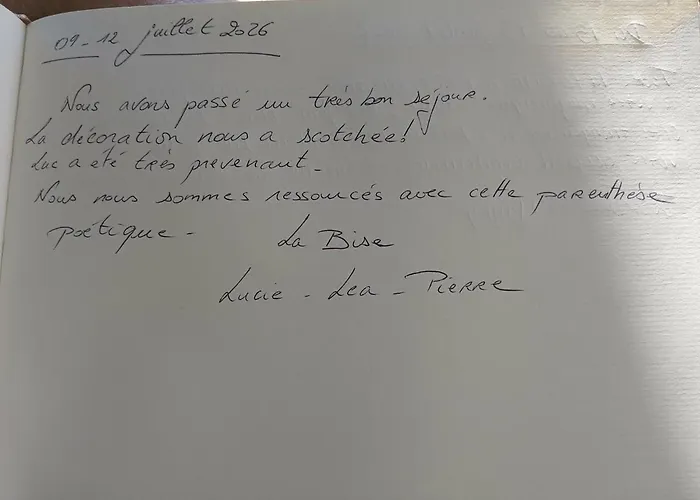 09-12 juillet 2026
Nous avons passé un très bon séjour.
La décoration nous a scotchée!
Luc a été très prevenant.
Nous nous sommes ressourcés avec cette parenthèse
poétique.
La Bise
Lucie - Lea - Pierre